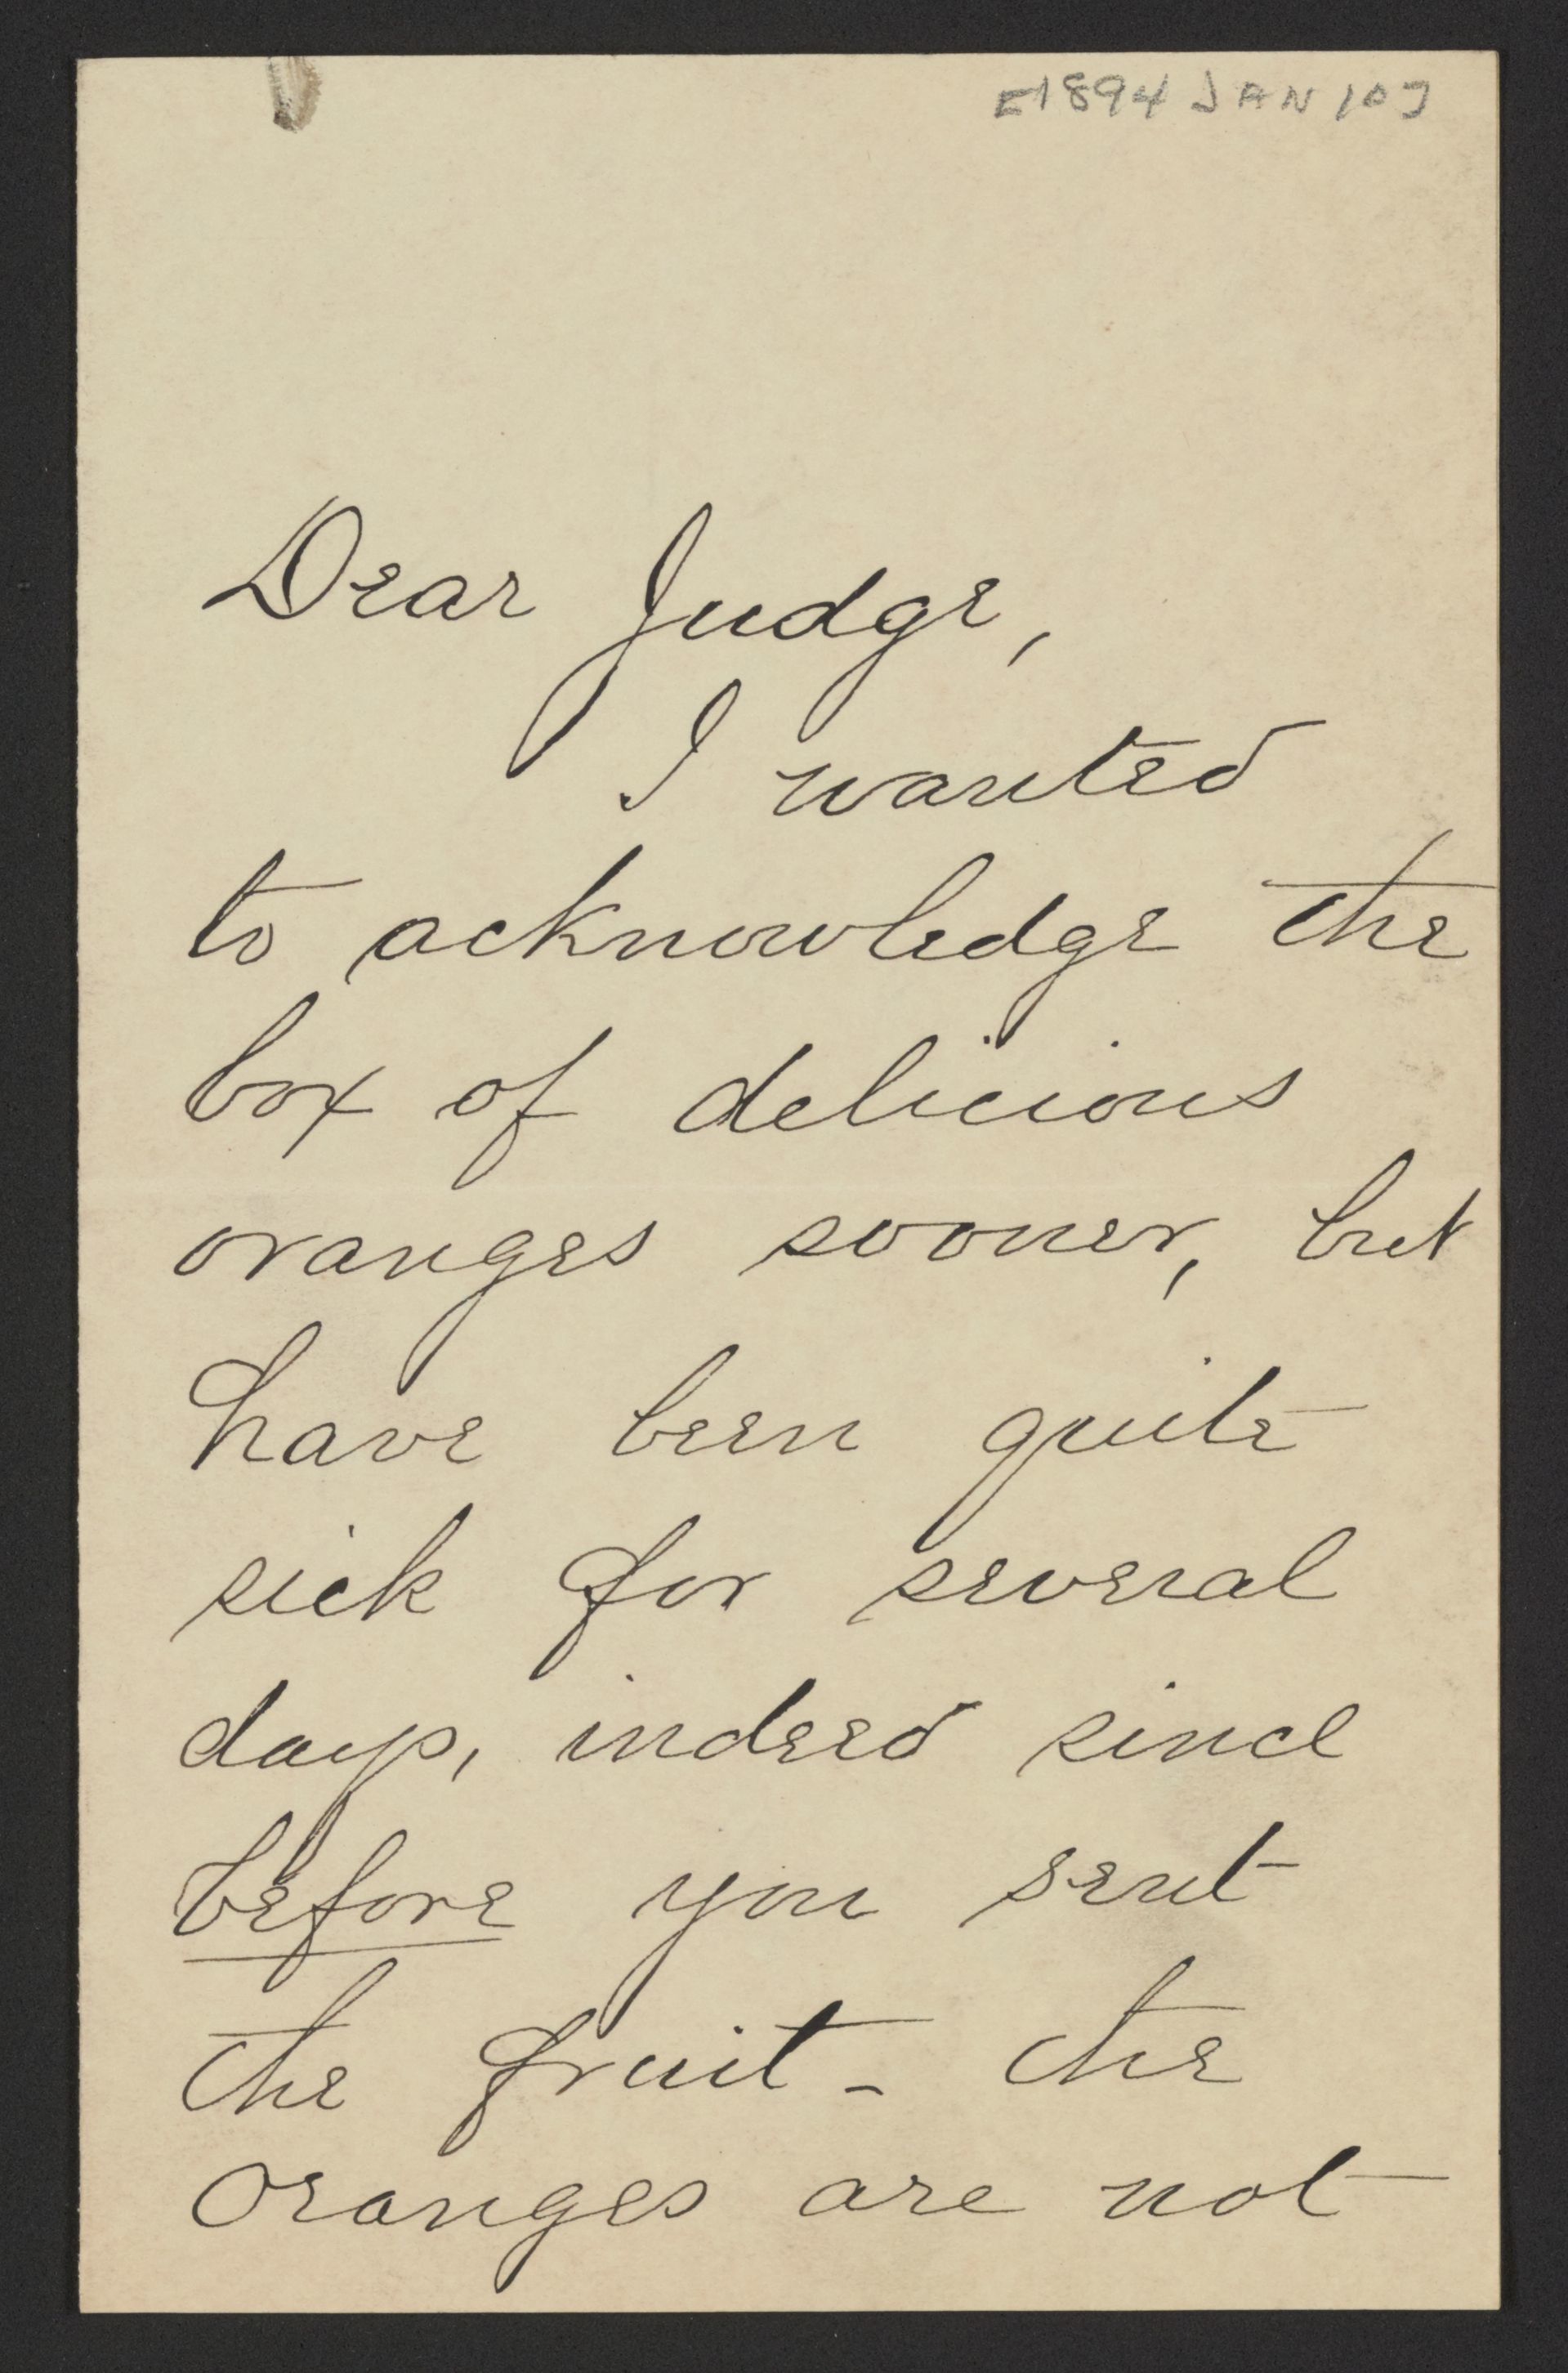 [1894 JAN 10]
Dear Judge,
I wanted
to acknowledge the
box of delicious
oranges sooner, but
have been quite
sick for several
days, indeed since
before you sent
the fruit - the
oranges are not